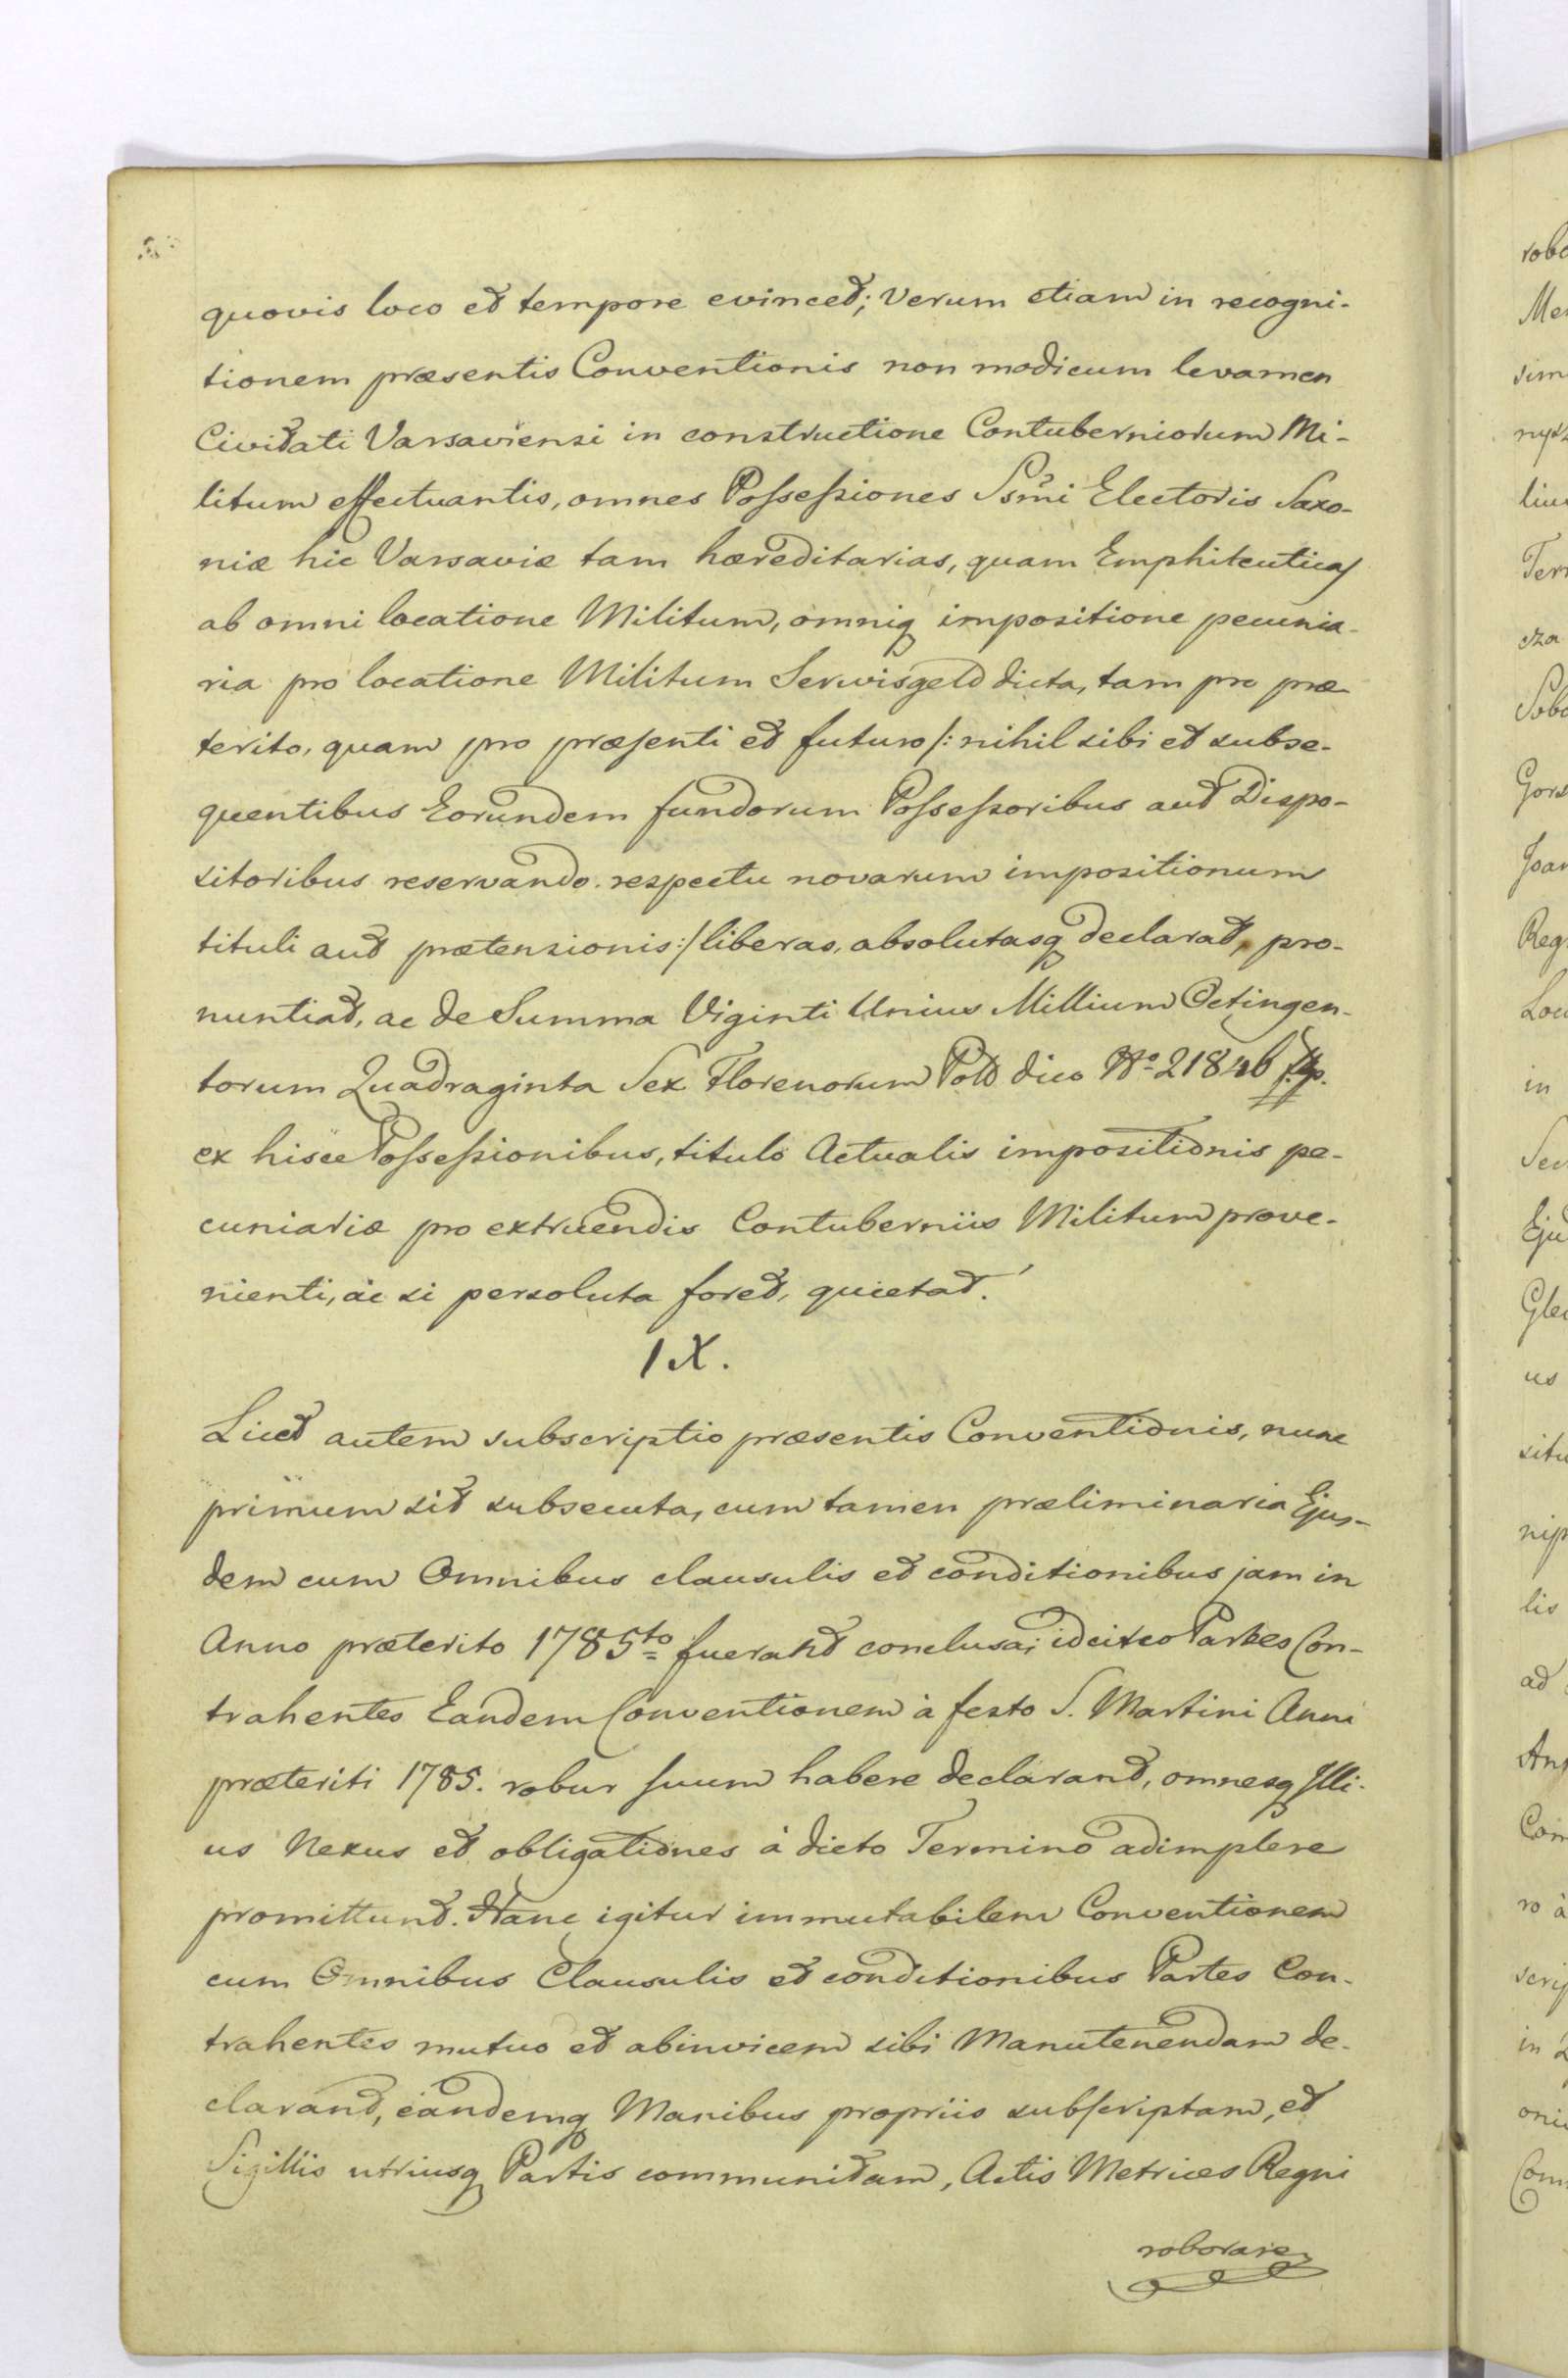 quovis loco et tempore evincet; verum etiam in recogni-
tionem præsentis Conventionis non modicum levamen
Civitati Varsaviensi in constructione Contuberniorum Mi-
litum effectuantis, omnes Possessiones Ssmi Electoris Saxo-
niæ hic Varsaviæ tam hæreditarias, quam Emphiteuticas
ab omni locatione Militum, omniq impositione pecunia-
ria pro locatione Militum Serwisgeld dicta, tam pro præ
terito, quam pro præsenti et futuro /: nihil sibi et subse-
quentibus Eorundem fundorum Possessoribus aut Dispo-
sitoribus reservando respectu novarum impositionum
tituli aut prætensionis :/ liberas, absolutasq declarat, pro-
nuntiat, ac de Summa Viginti Unius Millium Octingen-
torum Quadraginta Sex Florenorum Poll dico No 21846 fl.p.
ex hisce Possessionibus, titulo Actualis impositionis pe-
cuniariæ pro extruendis Contuberniis Militum prove-
nienti, ac si persoluta foret, quietat.
IX.
Licet autem subscriptio præsentis Conventionis, nunc
primum sit subsecuta, cum tamen præliminaria Ejus-
dem cum Omnibus clausulis et conditionibus jam in
Anno præterito 1785to fuerant conclusa; idcirco Partes Con-
trahentes Eandem Conventionem à festo S. Martini Anni
præteriti 1785. robur suum habere declarant, omnesq Illi-
us Nexus et obligationes à dicto Termino adimplere
promittunt. Hanc igitur immutabilem Conventionem
cum Omnibus Clausulis et conditionibus Partes Con-
trahentes mutuo et abinvicem sibi Manutenendam de-
clarant, eandemq Manibus propriis subscriptam, et
Sigillis utriusq Partis communitam, Actis Metrices Regni
roborare